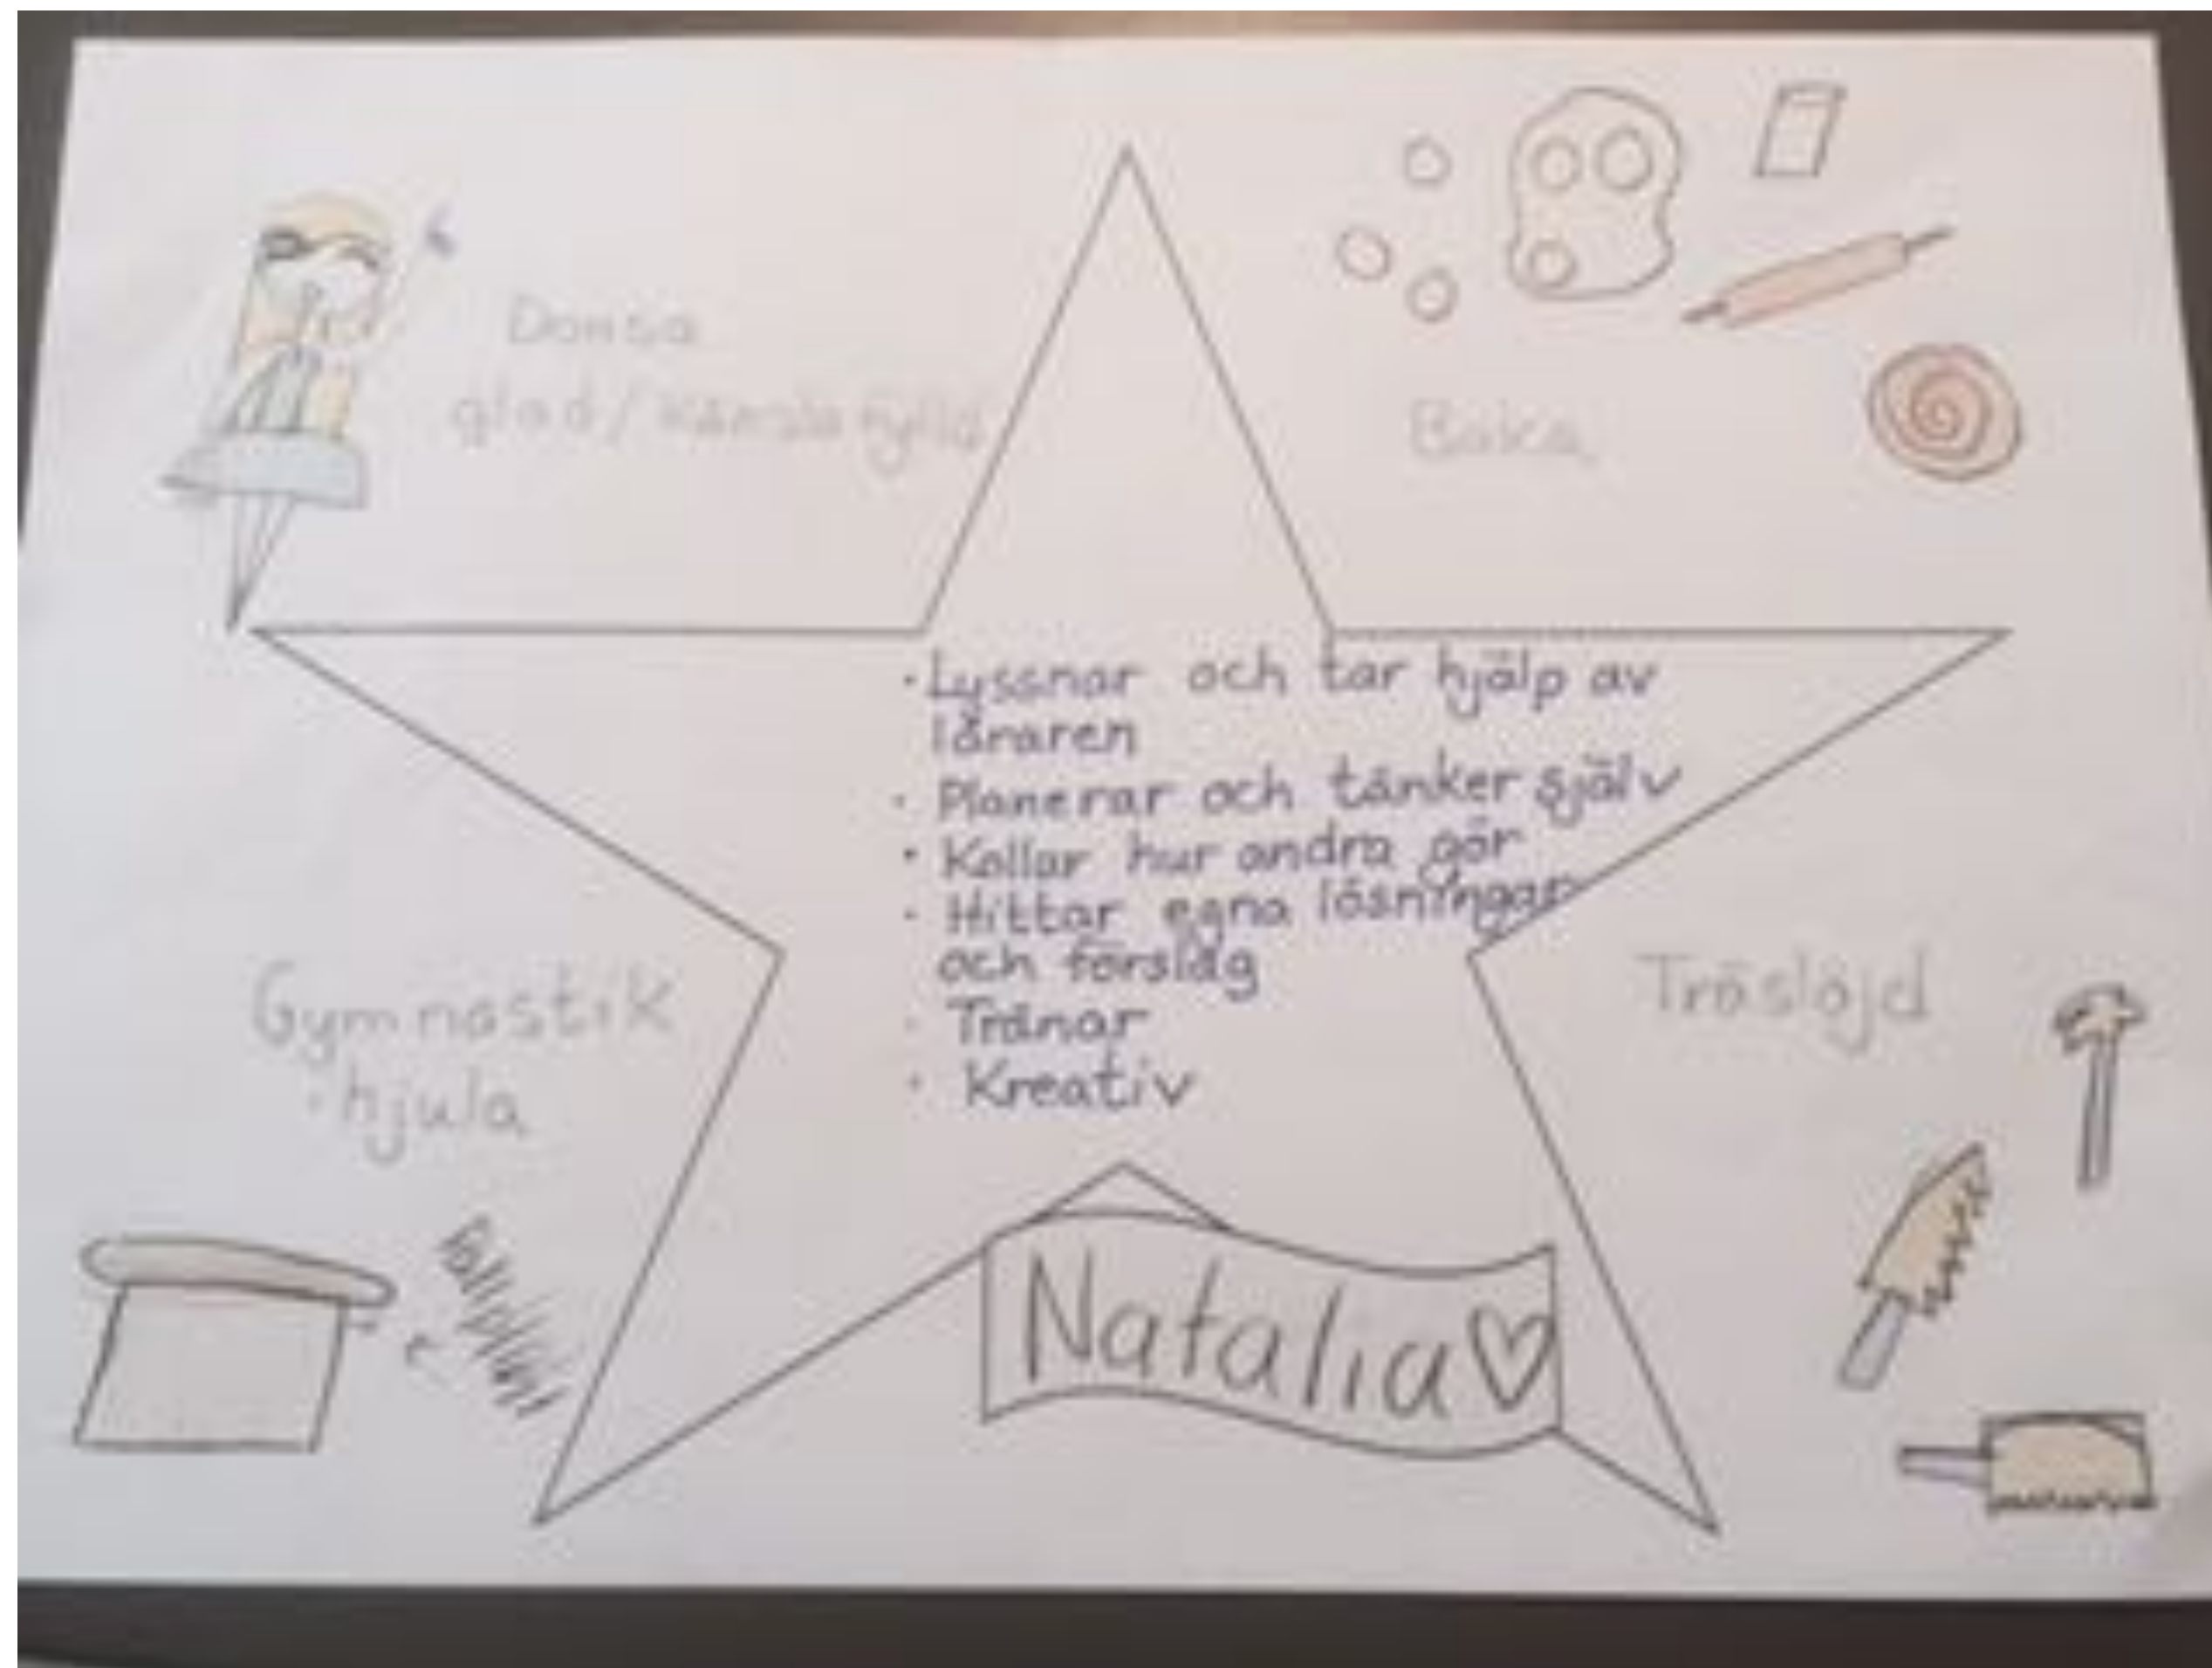 Dansa
glad/känslofylld
Baka
· Lyssnar och tar hjälp av
läraren
· Planerar och tänker själv
· Kollar hur andra gör
· Hittar egna lösningar
och förslag
· Tränar
· Kreativ
Gymnastik
· hjula
Träslöjd
Natalia♡